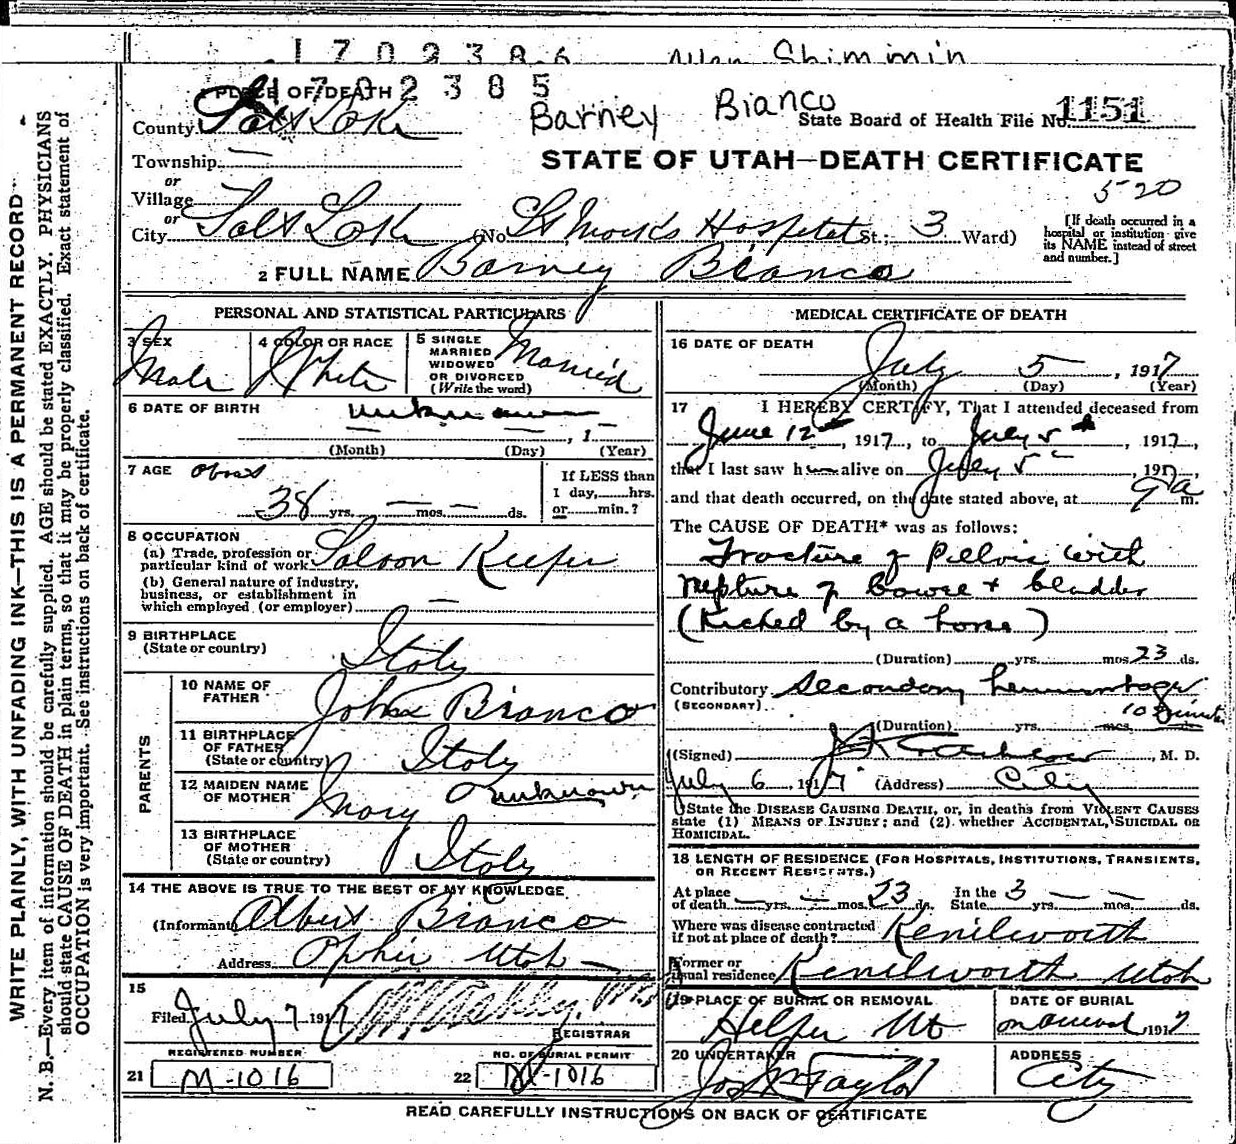 1702386
Allan Shimmin
1702385
PLACE OF DEATH
Barney Bianco
County Salt Lake
State Board of Health File No. 1151
Township
STATE OF UTAH—DEATH CERTIFICATE
or
Village
520
or
City Salt Lake (No. St Marks Hospital St.; 3 Ward)
[If death occurred in a hospital or institution give its NAME instead of street and number.]
2 FULL NAME Barney Bianco
PERSONAL AND STATISTICAL PARTICULARS
3 SEX Male
4 COLOR OR RACE White
5 SINGLE MARRIED WIDOWED OR DIVORCED (Write the word) Married
6 DATE OF BIRTH unknown
, 1
(Month) (Day) (Year)
7 AGE About
38 yrs. — mos. — ds.
If LESS than
1 day,......hrs.
or......min.?
8 OCCUPATION
(a) Trade, profession or
particular kind of work Saloon Keeper
(b) General nature of industry,
business, or establishment in
which employed (or employer) —
9 BIRTHPLACE
(State or country) Italy
PARENTS
10 NAME OF FATHER John Bianco
11 BIRTHPLACE OF FATHER (State or country) Italy
12 MAIDEN NAME OF MOTHER Mary unknown
13 BIRTHPLACE OF MOTHER (State or country) Italy
14 THE ABOVE IS TRUE TO THE BEST OF MY KNOWLEDGE
(Informant) Albert Bianco
Address Ophir Utah
15
Filed July 7 1917
REGISTRAR
REGISTERED NUMBER
21 M-1016
NO. OF BURIAL PERMIT
22 M-1016
MEDICAL CERTIFICATE OF DEATH
16 DATE OF DEATH
July 5, 1917
(Month) (Day) (Year)
17 I HEREBY CERTIFY, That I attended deceased from
June 12th, 1917, to July 5th, 1917,
that I last saw him alive on July 5th, 1917,
and that death occurred, on the date stated above, at 9 a m.
The CAUSE OF DEATH* was as follows:
Fracture of Pellvis with
rupture of bowel + bladder
(Kicked by a horse)
(Duration) yrs. mos. 23 ds.
Contributory Secondary hemmorhage
(SECONDARY)
10 minutes
(Duration) yrs. mos. ds.
(Signed) , M. D.
July 6, 1917 (Address) City
*State the DISEASE CAUSING DEATH, or, in deaths from VIOLENT CAUSES
state (1) MEANS OF INJURY; and (2) whether ACCIDENTAL, SUICIDAL OR
HOMICIDAL.
18 LENGTH OF RESIDENCE (FOR HOSPITALS, INSTITUTIONS, TRANSIENTS,
OR RECENT RESIDENTS.)
At place of death — yrs. — mos. 23 ds. In the State 3 yrs. — mos. — ds.
Where was disease contracted
if not at place of death? Kenilworth
Former or
usual residence Kenilworth Utah
19 PLACE OF BURIAL OR REMOVAL
Helper Ut
DATE OF BURIAL
on arrival 1917
20 UNDERTAKER
Jos Wm Taylor
ADDRESS
City
READ CAREFULLY INSTRUCTIONS ON BACK OF CERTIFICATE
WRITE PLAINLY, WITH UNFADING INK—THIS IS A PERMANENT RECORD
N. B.—Every item of information should be carefully supplied. AGE should be stated EXACTLY. PHYSICIANS
should state CAUSE OF DEATH in plain terms, so that it may be properly classified. Exact statement of
OCCUPATION is very important. See instructions on back of certificate.